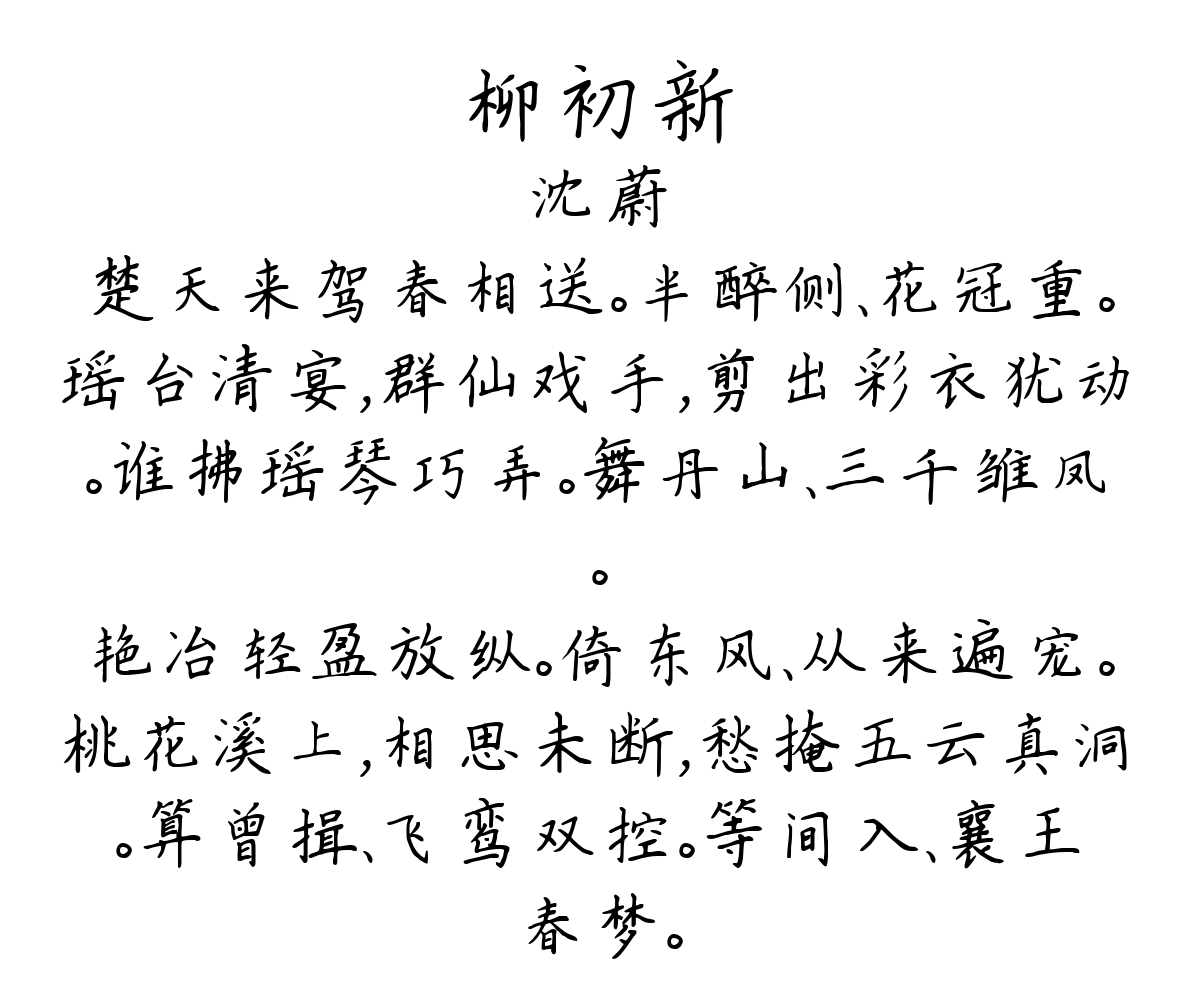 柳初新
沈蔚
楚天来驾春相送。半醉侧、花冠重。
瑶台清宴,群仙戏手,剪出彩衣犹动
。谁拂瑶琴巧弄。舞丹山、三千雏凤
。
艳冶轻盈放纵。倚东风、从来遍宠。
桃花溪上,相思未断,愁掩五云真洞
。算曾揖、飞鸾双控。等间入、襄王
春梦。